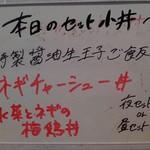 本日のセット小丼
特製醤油生玉子ご飯
ネギチャーシュー丼
水菜とネギの
梅鶏丼
夜セット
or
昼セット